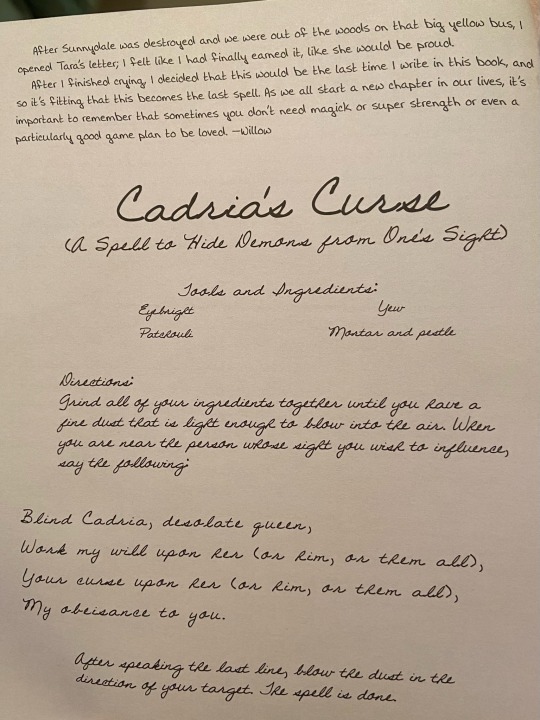 After Sunnydale was destroyed and we were out of the woods on that big yellow bus, I
opened Tara's letter; I felt like I had finally earned it, like she would be proud.
After I finished crying, I decided that this would be the last time I write in this book, and
so it's fitting that this becomes the last spell. As we all start a new chapter in our lives, it's
important to remember that sometimes you don't need magick or super strength or even a
particularly good game plan to be loved. —Willow
Cadria's Curse
(A Spell to Hide Demons from One's Sight)
Tools and Ingredients:
Eyebright
Yew
Patchouli
Mortar and pestle
Directions:
Grind all of your ingredients together until you have a
fine dust that is light enough to blow into the air. When
you are near the person whose sight you wish to influence,
say the following:
Blind Cadria, desolate queen,
Work my will upon her (or him, or them all),
Your curse upon her (or him, or them all),
My obeisance to you.
After speaking the last line, blow the dust in the
direction of your target. The spell is done.